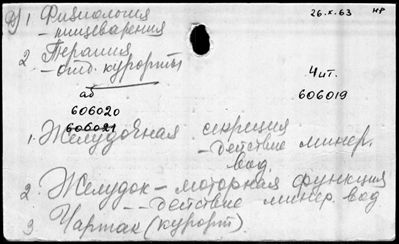 1 Физиология 26.X.63 нр
- пищеварения
2. Терапия
- отд. курорты
аб Чит.
606020 606019
606021
1. Желудочная секреция
- действие минер.
вод.
2. Желудок - моторная функция
- действие минер. вод
3. Чартак (курорт).